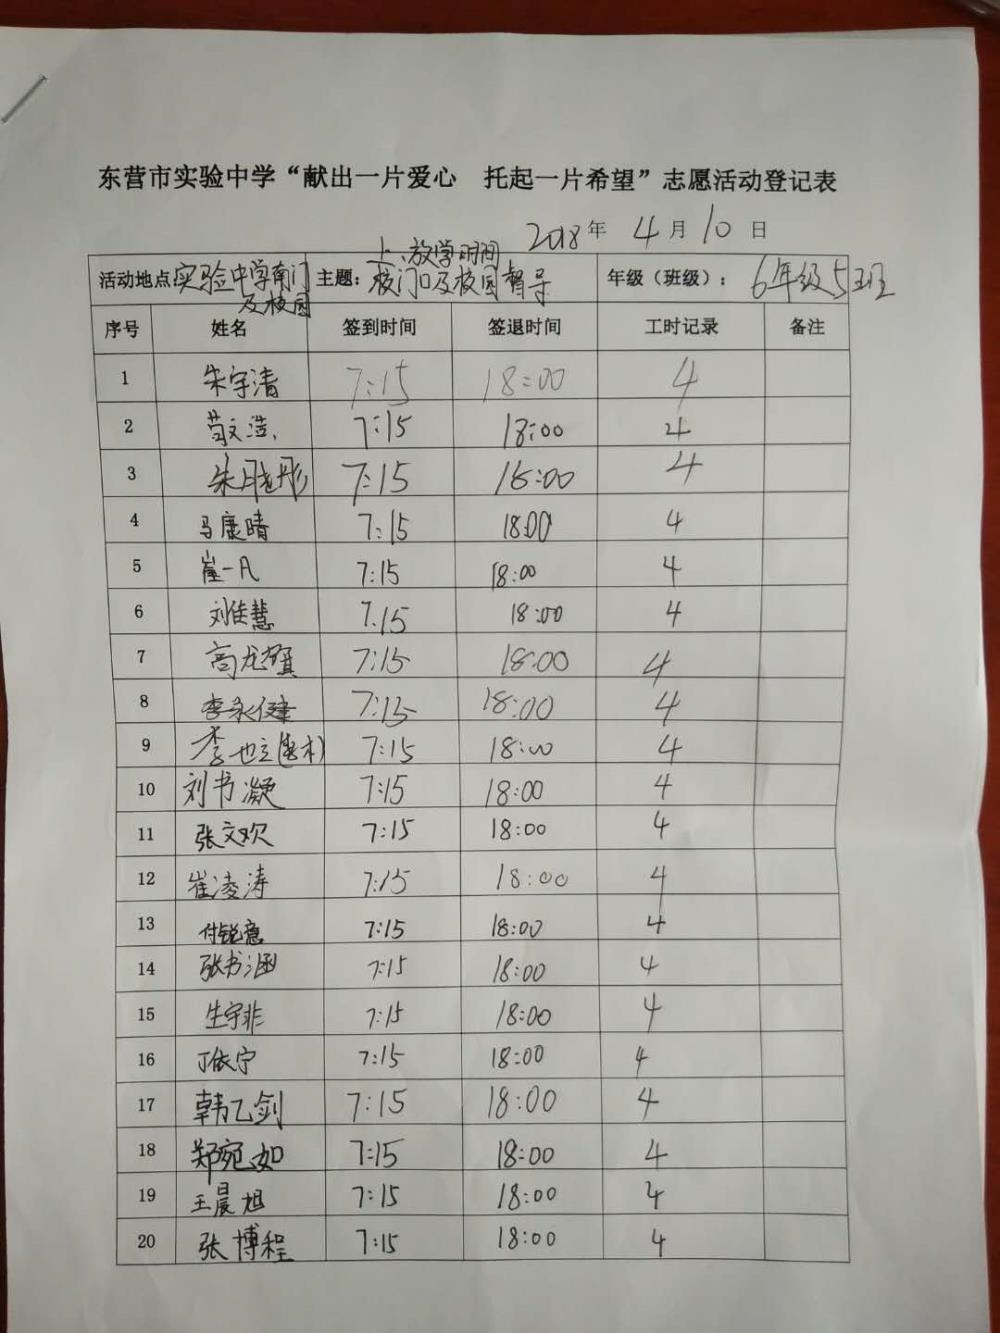 东营市实验中学“献出一片爱心 托起一片希望”志愿活动登记表
2018年 4月10日
活动地点实验中学南门及校园 主题:上、放学时间校门口及校园督导 年级(班级):6年级5班
序号 姓名 签到时间 签退时间 工时记录 备注
1 朱宇清 7:15 18:00 4
2 苟文浩 7:15 18:00 4
3 朱彤 7:15 18:00 4
4 马康晴 7:15 18:00 4
5 崔一凡 7:15 18:00 4
6 刘佳慧 7:15 18:00 4
7 高龙 7:15 18:00 4
8 李永健 7:15 18:00 4
9 李也立 7:15 18:00 4
10 刘书凝 7:15 18:00 4
11 张文欢 7:15 18:00 4
12 崔凌涛 7:15 18:00 4
13 付锐意 7:15 18:00 4
14 张书涵 7:15 18:00 4
15 生宇非 7:15 18:00 4
16 丁依宁 7:15 18:00 4
17 韩乙剑 7:15 18:00 4
18 郑宛如 7:15 18:00 4
19 王晨旭 7:15 18:00 4
20 张博程 7:15 18:00 4